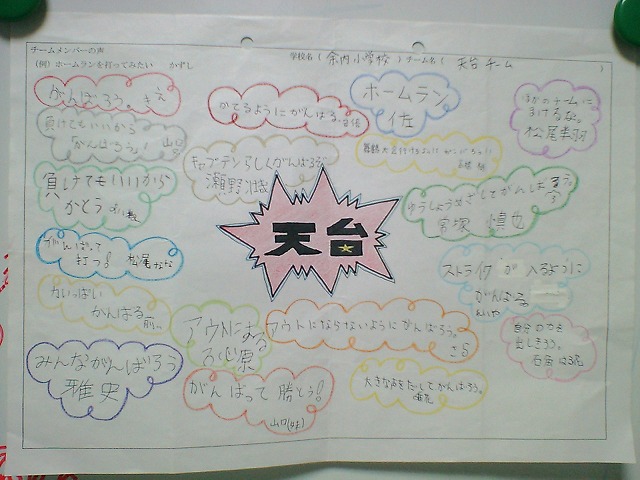 チームメンバーの声
(例) ホームランを打ってみたい かずし
学校名 ( 余内小学校 ) チーム名 ( 天台チーム )
がんばろう。
かてるようにがんばる。
ホームラン
佐
ほかのチームに
まけるな。
松尾
負けてもいいから
がんばろう!
キャプテンらしくがんばるぞ
瀬野
負けてもいいから
かとう
ゆうしょうめざしてがんばるぞ
宮塚 慎也
天台
がんばって
打つ! 松尾 なな
ストライクが入るように
がんばる
力いっぱい
がんばる
アウトにする
アウトにならないようにがんばろう。
自分の力を
出しきろう。
みんながんばろう
雅史
がんばって勝とう!
山口(妹)
大きな声をだしてがんばろう。